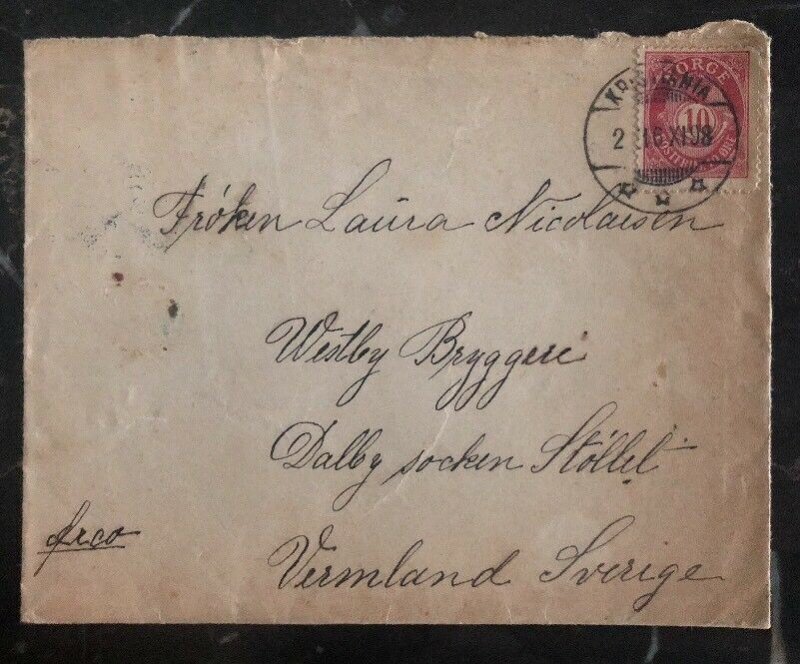 NORGE
10
KRISTIANIA
2 16 XI 08
Frøken Laura Nicolaisen
Westby Bryggeri
Dalby socken Stöllet
Vermland Sverige
frco